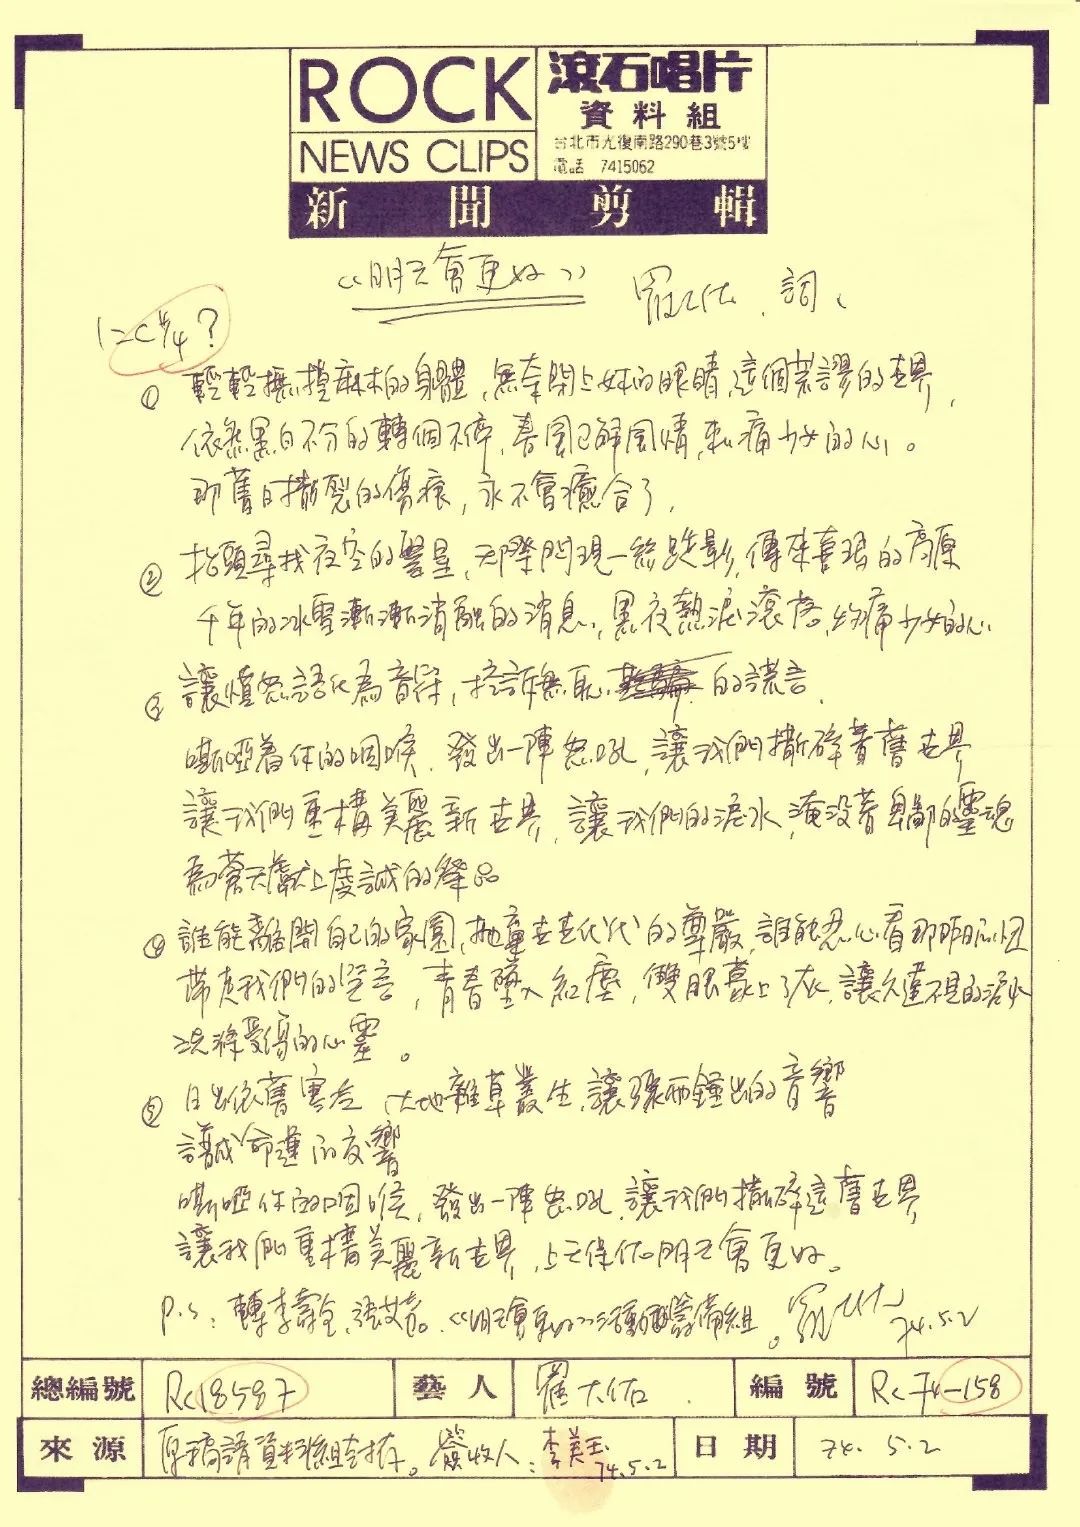 ROCK
NEWS CLIPS
滾石唱片
資料組
台北市光復南路290巷3號5樓
電話 7415062
新聞剪輯
《明天會更好》 羅大佑 詞、
12C 4/4?
① 輕輕撫摸麻木的身體,無奈閉上妳的眼睛,這個荒謬的世界,
依然黑白不分的轉個不停,春風已解風情,刺痛少女的心。
那舊日撕裂的傷痕,永不會癒合了,
② 抬頭尋找夜空的繁星,天際閃現一絲跌影,傳來喜瑪的高原
千年的冰雪漸漸消融的消息,黑夜熱淚滾落,灼痛少女的心
③ 讓憤怒語化為音符,控訴無恥的謊言,
嘶啞著你的咽喉,發出一陣怒吼,讓我們撕碎舊世界
讓我們重構美麗新世界,讓我們的淚水,淹没著卑鄙的靈魂
為蒼天獻上虔誠的祭品
④ 誰能離開自己的家園,拋棄世世代代的尊嚴,誰能忍心看那昨日的
帶走我們的,青春墮入紅塵,雙眼蒙上了灰,讓久違不見的淚水
洗滌受傷的心靈。
⑤ 日出依舊寒冷 大地雜草叢生,讓孤雨鐘出的音響
譜成命運的交響
嘶啞你的咽喉,發出一陣怒吼,讓我們撕碎這舊世界
讓我們重構美麗新世界,上天保佑明天會更好。
P.S: 轉李壽全、張艾嘉。《明天會更好》活動籌備組。羅大佑 74.5.2
總編號 Rc18587 藝人 羅大佑 編號 Rc74-158
來源 原稿請資料組封存。簽收人:李美玉 74.5.2 日期 74.5.2